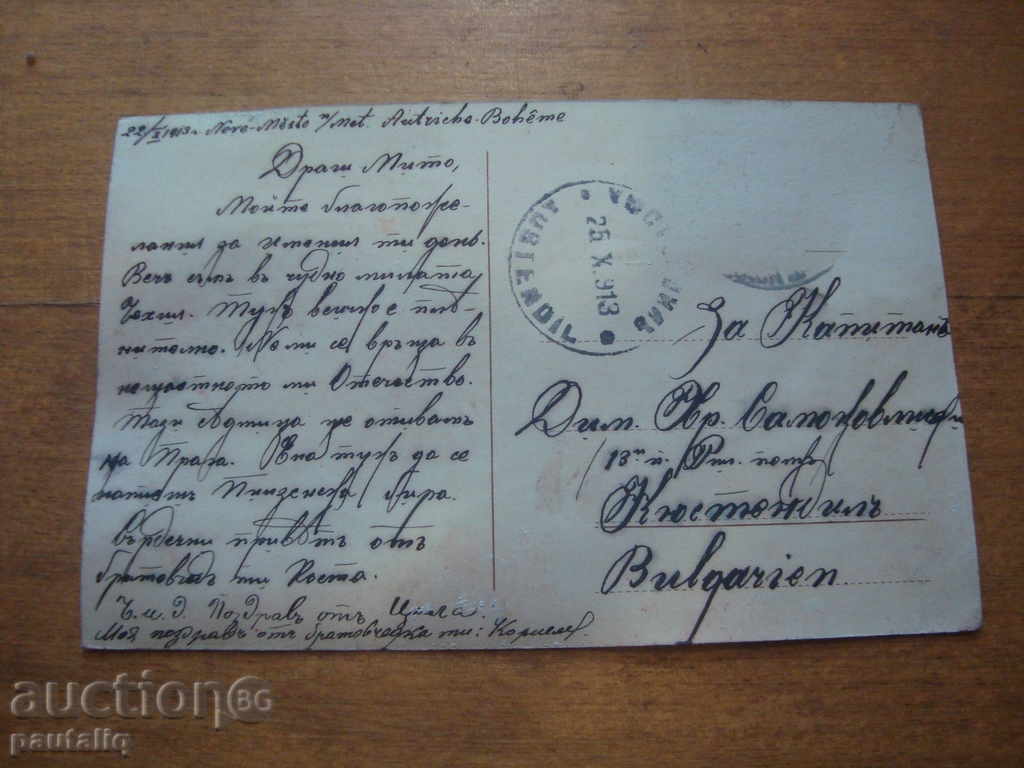 22/X 1913 г. Nové-Město n/Met. Autriche-Bohême
Драги Мито,
Мойте благопоже-
лания да именния ти день.
Вечъ съмъ въ чудно милата
Чехия. Тукъ всичко е плѣ-
нително. Не ми се връща въ
нещастното ми Отечество.
Тази седмица ще отивамъ
на Прага. Ела тукъ да се
напиемъ Пилзенска бира.
Сърдечни привѣтъ отъ
братовчедъ ти Коста.
Ч. и. д. Поздравъ отъ Цила.
Моя поздравъ отъ братовчедка ти:
KUSTENDIL
25.X.913
За Капитанъ
Дим. Хр. Самоковлийски
13й п. Рил. полкъ
Кюстендилъ
Bulgarien
auctionBG
pautaliq